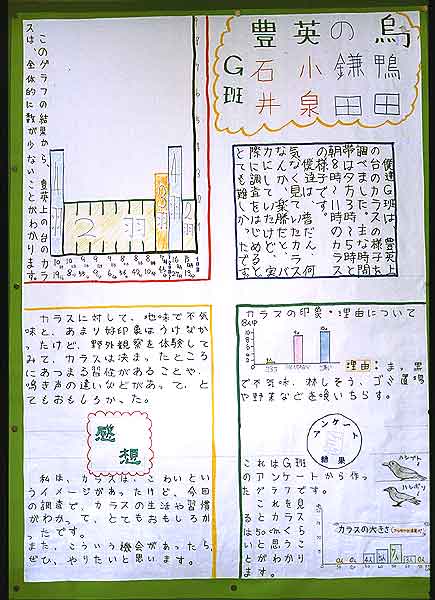 豊英の烏
G班
鴨田
鎌田
小泉
石井
僕達G班は、豊英上
の台のカラスの様子を
調べました。主な時間
帯は夕方3時〜5時と
朝8時〜11時のカラス
の様子です。
気なく見ていたカラス
なんか楽勝だと、バ
際に調査をはじめると
このグラフの結果から、豊英上の台のカラ
スは、全体的に数が少ないことがわかります。
4羽
2羽
3羽
4羽
2羽
カラスに対して、地味で不気
味と、あまり好印象はうけなか
ったけど、野外観察を体験して
みて、カラスは決まったところ
にあつまる習性があることや、
鳴き声の違いなどがあって、と
てもおもしろかった。
感想
私は、カラスは、こわいとい
うイメージがあったけど、今回
の調査で、カラスの生活や習慣
がわかって、とてもおもしろか
ったです。
また、こういう機会があったら、
ぜひ、やりたいと思います。
カラスの印象・理由について
理由:まっ黒
で不気味、淋しそう、ゴミ置場
や野菜などを喰いちらす。
アンケート
結果
これはG班
のアンケートから作っ
たグラフです。
これを見
るとカラス
は50cmくら
いと思うこ
とがわかり
ます。
ハシブト
ハシボソ
カラスの大きさ